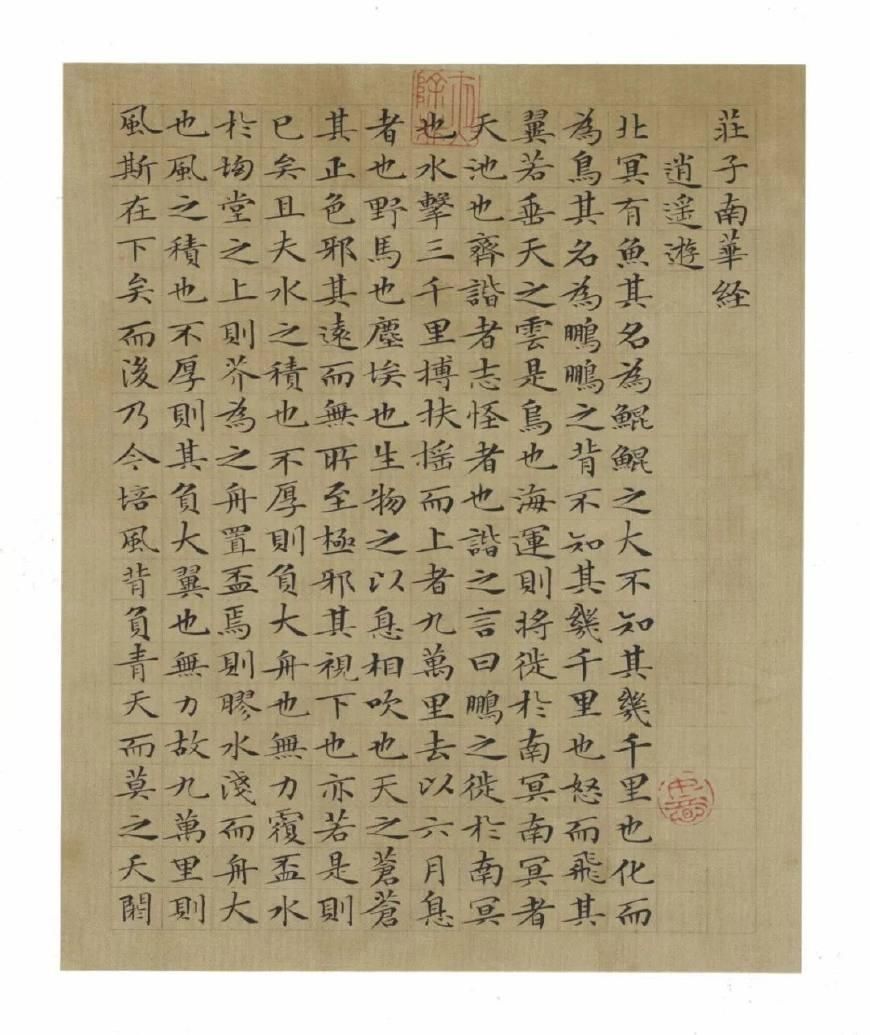 莊子南華経
逍遥遊
北冥有魚其名為鯤鯤之大不知其幾千里也化而
為鳥其名為鵬鵬之背不知其幾千里也怒而飛其
翼若垂天之雲是鳥也海運則將徙於南冥南冥者
天池也齊諧者志怪者也諧之言曰鵬之徙於南冥
也水擊三千里搏扶揺而上者九萬里去以六月息
者也野馬也塵埃也生物之以息相吹也天之蒼蒼
其正色邪其遠而無所至極邪其視下也亦若是則
已矣且夫水之積也不厚則負大舟也無力覆盃水
於坳堂之上則芥為之舟置盃焉則膠水淺而舟大
也風之積也不厚則其負大翼也無力故九萬里則
風斯在下矣而後乃今培風背負青天而莫之夭閼